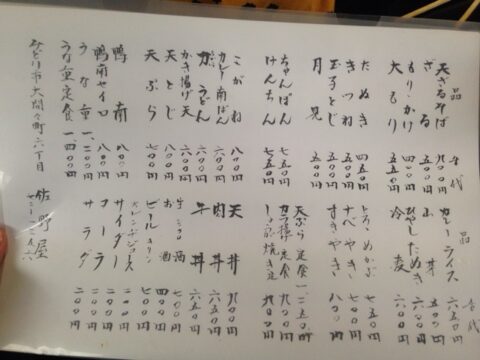 品 代
天ざるそば 九〇〇円
ざる 五五〇円
もり・かけ 四〇〇円
大もり 五五〇円
たぬき 四五〇円
きつね 五五〇円
玉子とじ 五五〇円
月見 五五〇円
ちゃんぽん 七五〇円
けんちん 七五〇円
こがね 八〇〇円
カレー南ばん 六〇〇円
力うどん 六〇〇円
かき揚げ天 六〇〇円
天とじ 八〇〇円
天ぷら 七〇〇円
鴨南 八〇〇円
鴨南セイロ 八〇〇円
うな重 一、二〇〇円
うな重定食 一四〇〇円
みどり市大間々町六丁目
品 代
カレーライス 六五〇円
山 丼 五五〇円
ひやしたぬき 六〇〇円
冷麦 六〇〇円
とろ、めかぶ 七五〇円
なべやき 七〇〇円
すきやき 八〇〇円
天ぷら定食 一二五〇円
カツ揚げ定食 九〇〇円
焼き定 九〇〇円
天丼 九〇〇円
肉丼 六五〇円
牛丼 六五〇円
お酒 四〇〇円
ビール キリン 五〇〇円
オレンヂジュース 二〇〇円
サイダー 二〇〇円
コーラ 二〇〇円
サラダ 二〇〇円
佐野屋